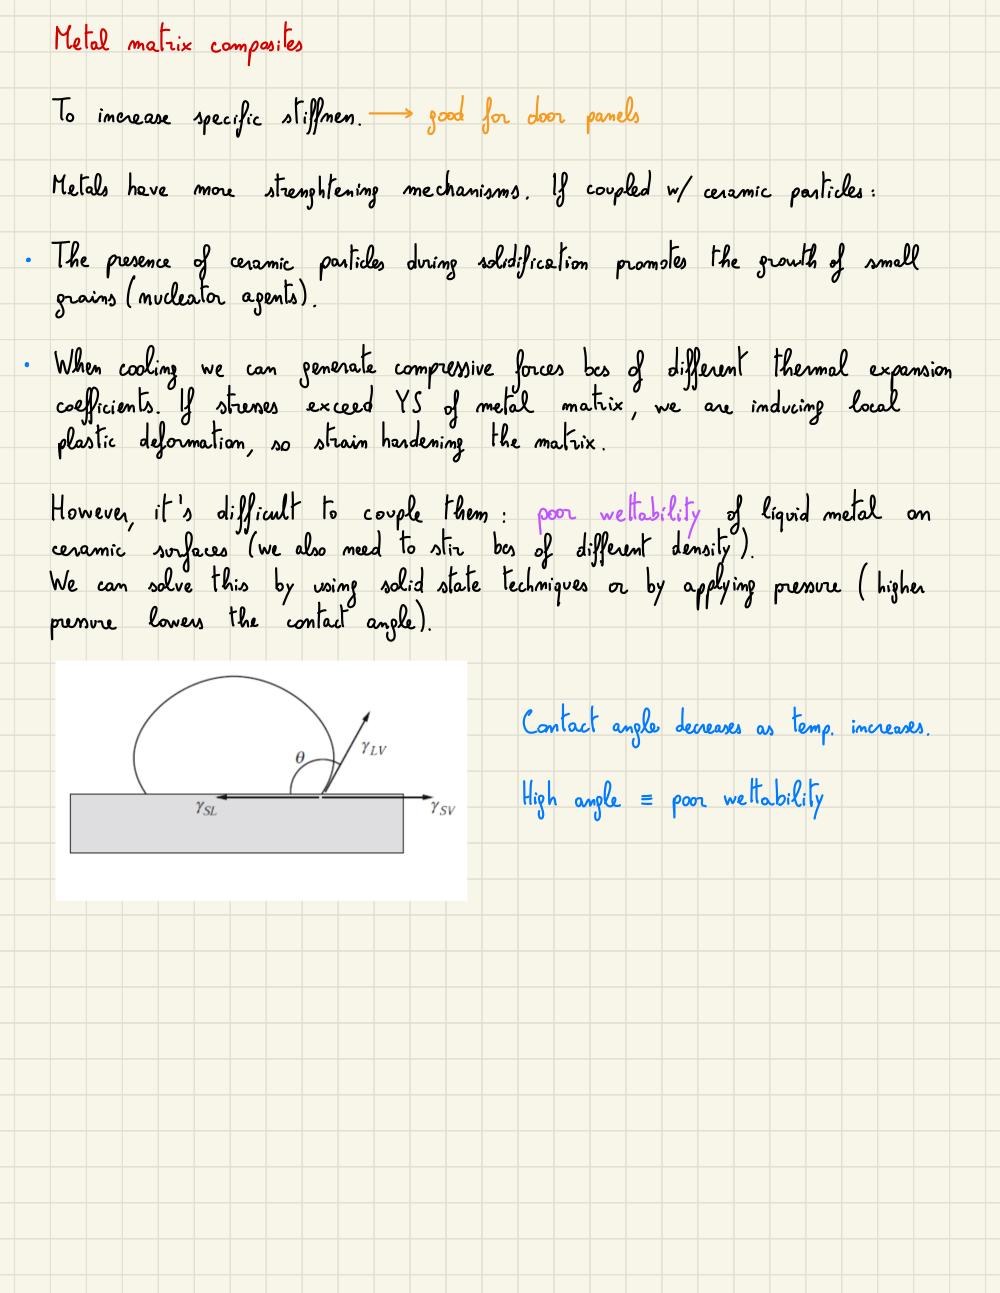 Metal matrix composites
To increase specific stiffness. → good for door panels
Metals have more strenghtening mechanisms. If coupled w/ ceramic particles:
• The presence of ceramic particles during solidification promotes the growth of small
grains (nucleator agents).
• When cooling we can generate compressive forces bcs of different thermal expansion
coefficients. If stresses exceed YS of metal matrix, we are inducing local
plastic deformation, so strain hardening the matrix.
However, it's difficult to couple them: poor wettability of liquid metal on
ceramic surfaces (we also need to stir bcs of different density).
We can solve this by using solid state techniques or by applying pressure (higher
pressure lowers the contact angle).
θ
γLV
γSL
γSV
Contact angle decreases as temp. increases.
High angle ≡ poor wettability